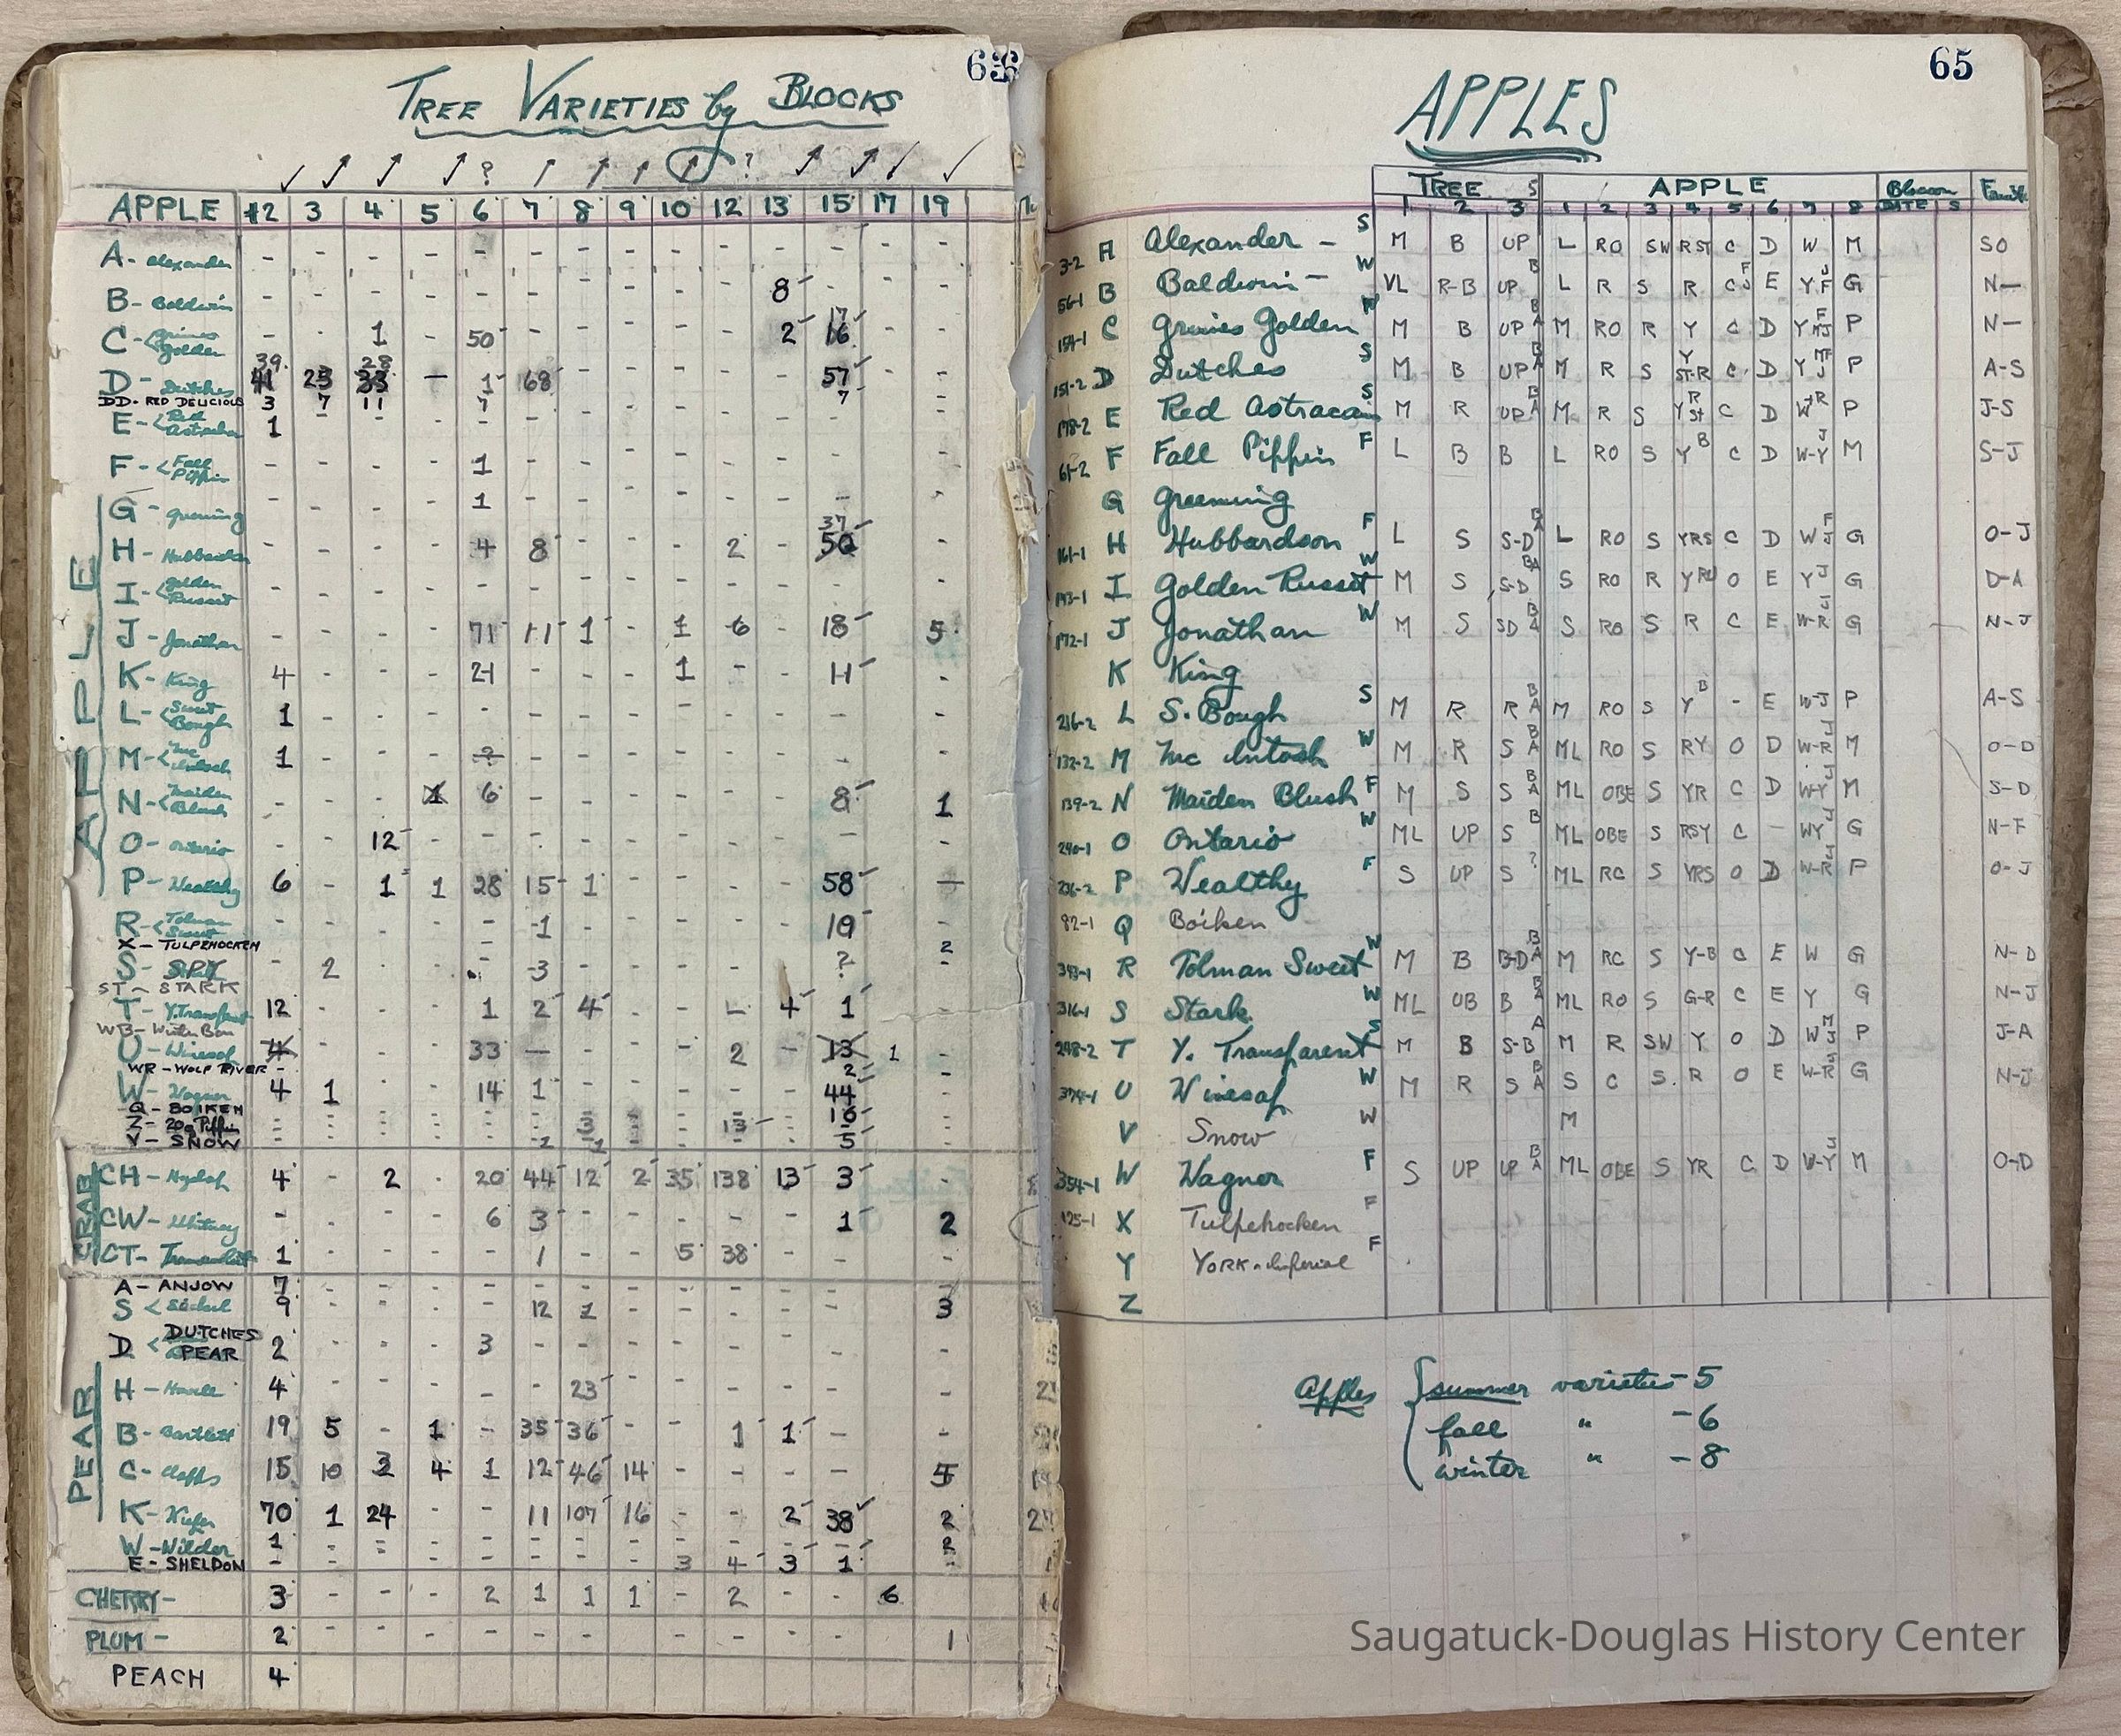 TREE VARIETIES by BLOCKS
APPLE #2 3 4 5 6 7 8 9 10 12 13 15 17 19
A - Alexander - - - - - - - - - - - - - -
B - Baldwin - - - - - - - - - - 8 - - -
C - Grimes Golden - - 1 - 50 - - - - - 2 17 16 - -
D - Dutches 39 25 28 - 1 68 57
DD - RED DELICIOUS 3 7 11 7 7
E - Red Astrachan 1
F - Fall Pippin 1
G - Greening 1
H - Hubbardson 4 8 2 37 50
I - Golden Russet
J - Jonathan 71 11 1 1 6 18 5
K - King 4 21 1 11
L - Sweet Bough 1
M - McIntosh 1 ?
N - Maiden Blush 1 6 8 1
O - Ontario 12
P - Wealthy 6 - 1 1 28 15 1 58 -
R - Tolman Sweet 1 19
X - TULPEHOCKEN 2
S - SPY 2 3 ?
ST - STARK
T - Y. Transparent 12 1 2 4 4 1
WB - Winter Ban
U - Winesap 4 33 - 2 - 13 1 -
WR - WOLF RIVER - 2
W - Wagner 4 1 14 1 44
Q - BOIKEN 16
Z - 20 oz Pippin 3 13
V - SNOW 2 1 5
CH - Hyslop 4 2 20 44 12 2 35 138 13 3
CW - Whitney 6 3 1 2
CT - Transcendent 1 1 5 38
A - ANJOW 7
S < Seckel 9 12 1 3
D < DUTCHES PEAR 2 3
H - Howell 4 23
B - Bartlett 19 5 - 1 - 35 36 - - 1 1 - -
C - Clapps 15 10 3 4 1 12 46 14 - - - -
K - Kiefer 70 1 24 - - 11 107 16 - - 2 38 2
W - Wilder 1 2
E - SHELDON 3 4 3 1
CHERRY - 3 - - - 2 1 1 1 - 2 - - 6
PLUM - 2 1
PEACH 4
APPLE
CRAB
PEAR
65
APPLES
TREE S APPLE Blossom Fruit
1 2 3 1 2 3 4 5 6 7 8 DATE S
3-2 A Alexander - S M B UP L RO SW RST C D W M SO
56-1 B Baldwin - W VL R-B UP B L R S R C E Y G N-
154-1 C Grimes Golden W M B UP BA M RO R Y C D Y P N-
151-2 D Dutches S M B UP BA M R S Y ST-R C D Y P A-S
178-2 E Red Astracan S M R UP BA M R S C D W P J-S
61-2 F Fall Pippin F L B B L RO S Y B C D W-Y J M S-J
G Greening
161-1 H Hubbardson F L S S-D BA L RO S YRS C D W G O-J
143-1 I Golden Russet W M S S-D BA S RO R YRU O E Y J G D-A
172-1 J Jonathan W M S SD BA S RO S R C E W-R J G N-J
K King
216-2 L S. Bough S M R R BA M RO S Y B - E W-J P A-S
132-2 M Mc Intosh W M R S BA ML RO S RY O D W-R J M O-D
139-2 N Maiden Blush F M S S BA ML OBE S YR C D W-Y J M S-D
240-1 O Ontario W ML UP S B ML OBE S RSY C - WY J G N-F
236-2 P Wealthy F S UP S ? ML RC S YRS O D W-R J P O-J
82-1 Q Boiken
343-1 R Tolman Sweet W M B B-D BA M RC S Y-B C E W G N-D
316-1 S Stark W ML UB B BA ML RO S G-R C E Y G N-J
248-2 T Y. Transparent S M B S-B A M R SW Y O D W P J-A
374-1 U Winesap W M R S BA S C S. R O E W-R J G N-J
V Snow W M
354-1 W Wagner F S UP UP BA ML OBE S YR C D W-Y J M O-D
125-1 X Tulpehocken F
Y YORK - Imperial F
Z
Apples { summer varieties - 5
fall " - 6
winter " - 8
Saugatuck-Douglas History Center